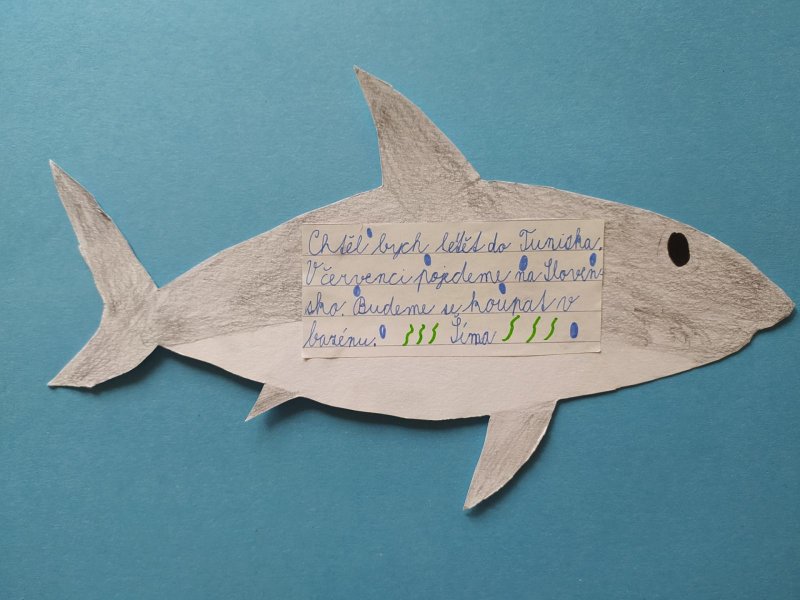 Chtěl bych letět do Tuniska.
V červenci pojedeme na Sloven-
sko. Budeme se koupat v
bazénu.
Síma